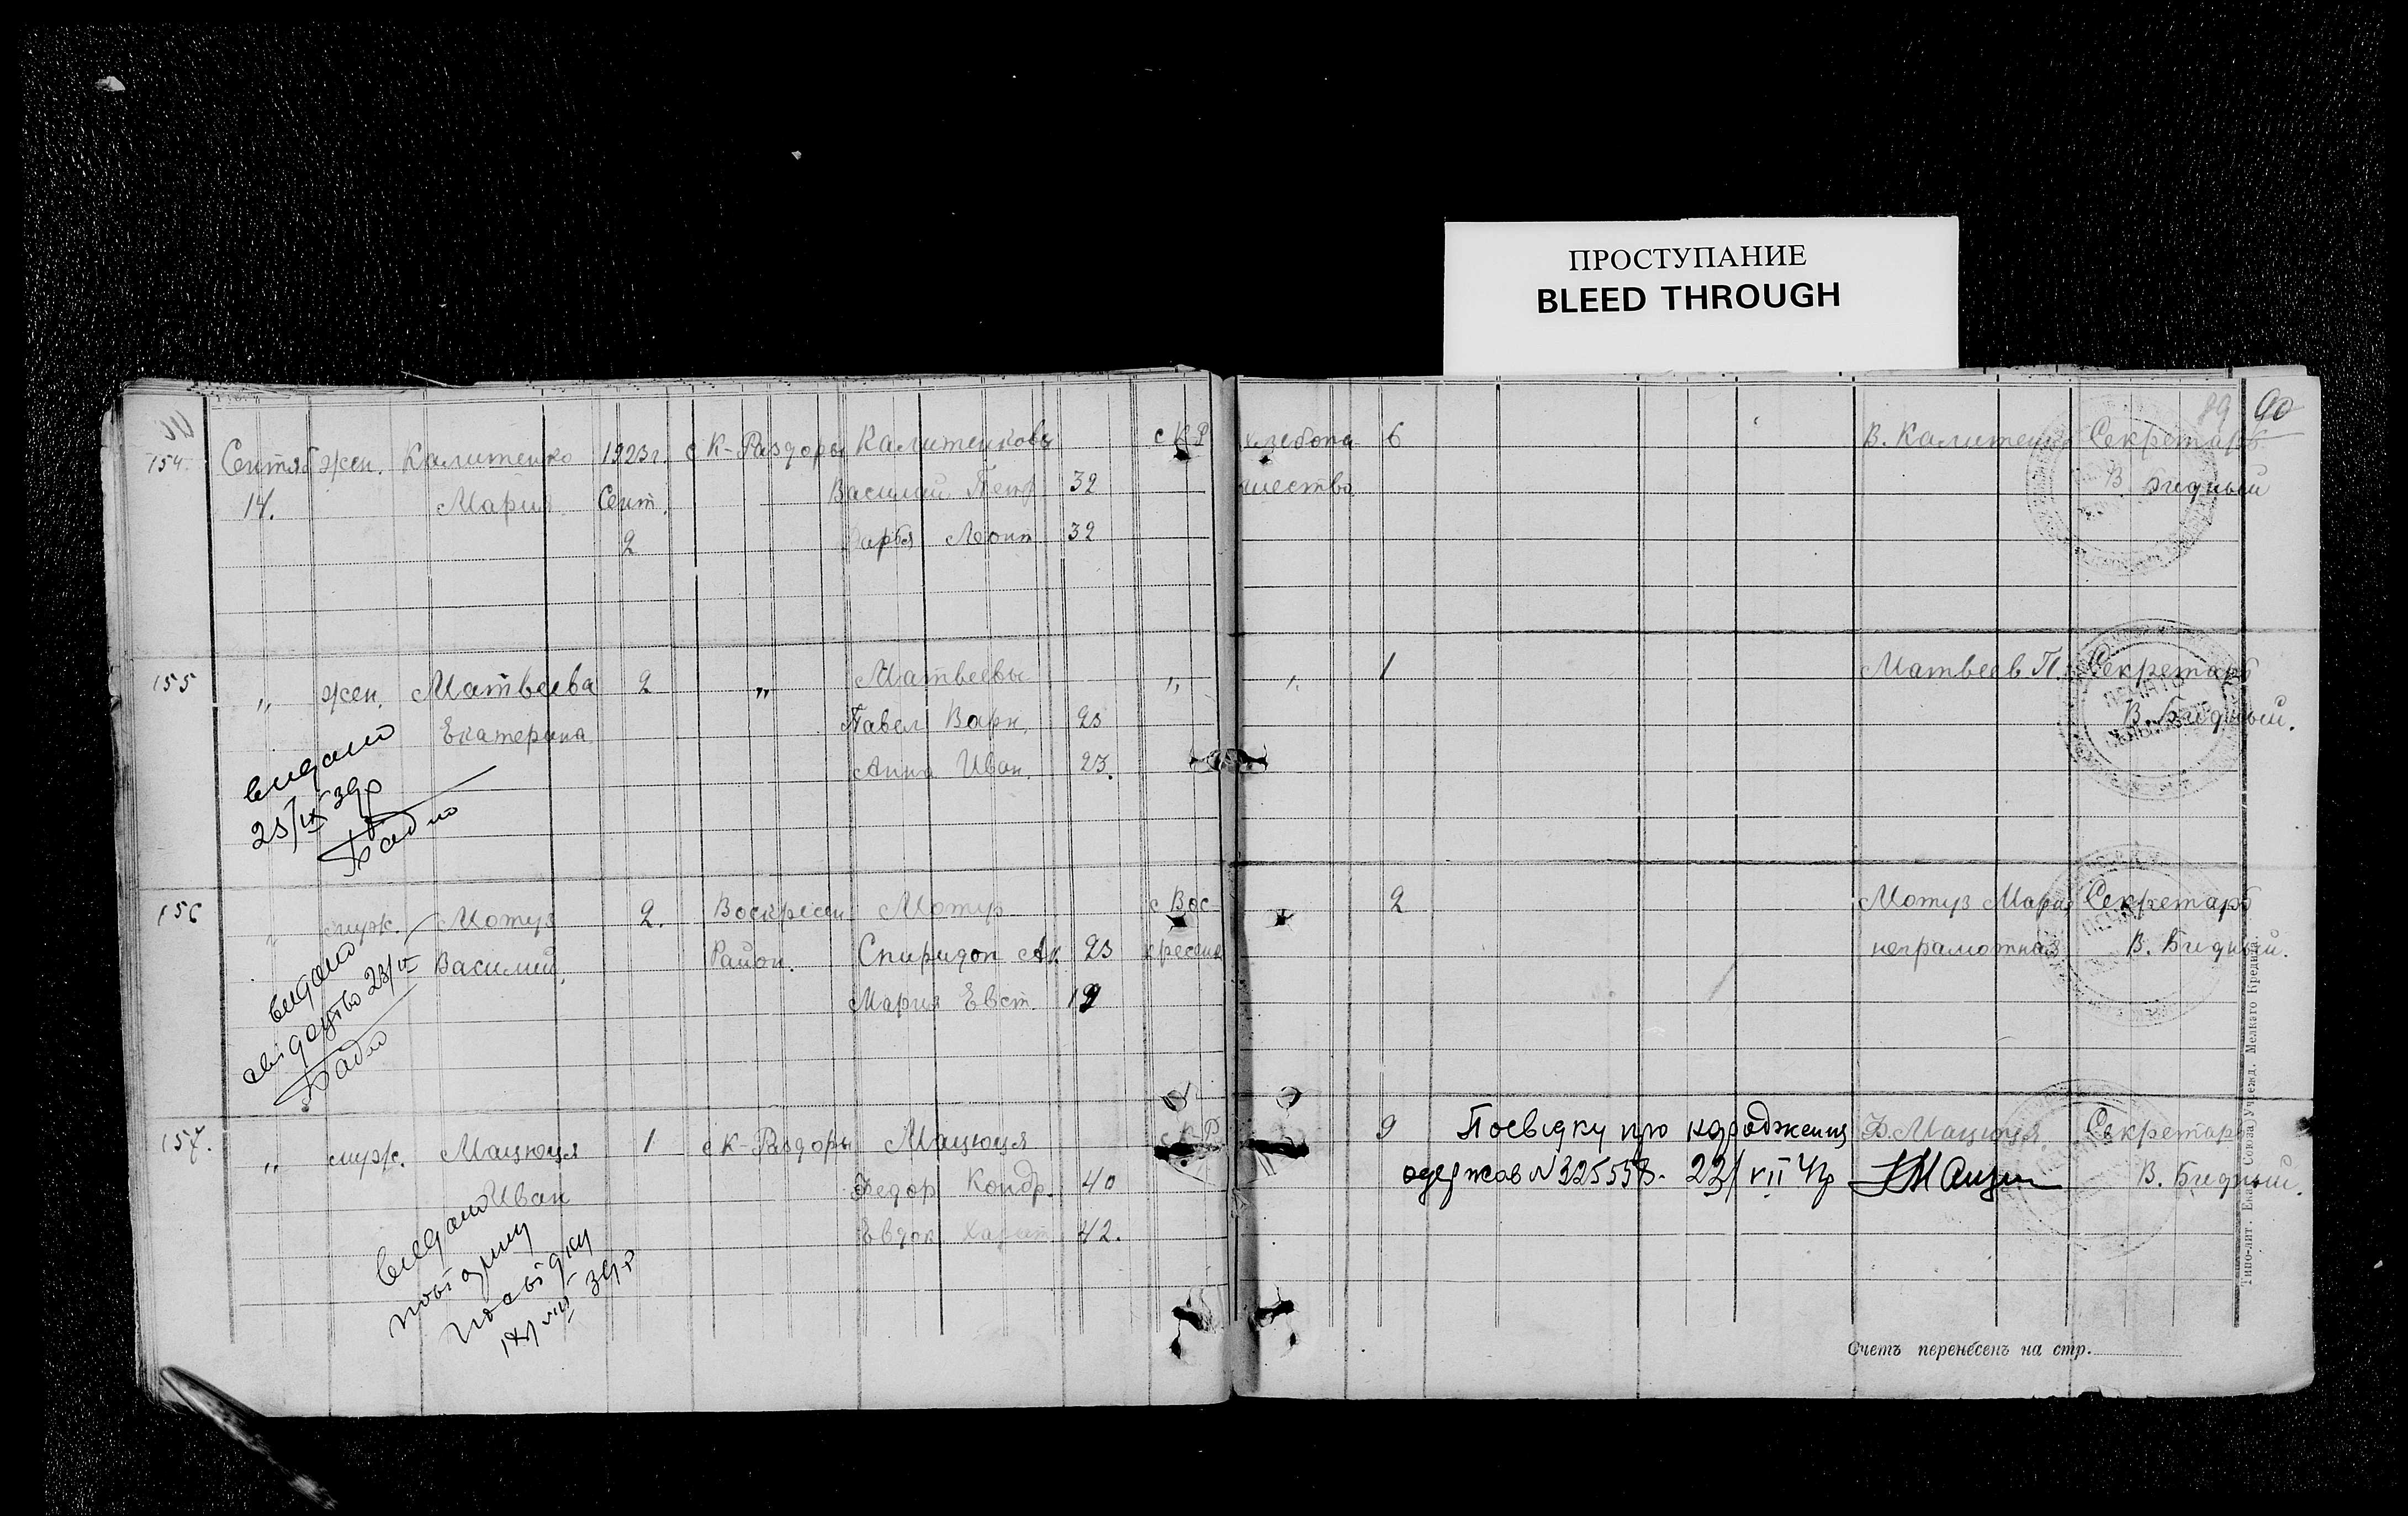 ПРОСТУПАНИЕ
BLEED THROUGH
89 90
154. Сентяб жен. Калитенко 1923г. с К-Раздоры Калитенковы с К Р хлебопа 6 В. Калитенко Секретарь
14. Мария Сент. Василий Петр. 32 шество В. Бидный
2 Дарья Леонт 32
155 " жен. Матвеева 2 " Матвеевы " " 1 Матвеев П. Секретарь
Екатерина Павел Варн. 23 В. Бидный.
Анна Иван. 23.
видано
23/IX 39р
156 " муж. Мотуз 2. Воскресен Мотуз с Вос 2 Мотуз Мария Секретарь
Василий. Район. Спиридон Ак. 23 кресенка неграмотная В. Бидный.
Мария Евст. 19
видано
свідоцтво 23/IV
157. " муж. Мацюця 1 с К-Раздоры Мацюця с К Р 9 Посвідку про народження Ф. Мацюця. Секретарь
Иван Федор Кондр. 40 одержав N 325553. 22/VII 41р В. Бидный.
Евдок 42.
видано
повторну
посвідку
17/VIII 39р
Типо-лит. Екат. Союза Учрежд. Мелкаго Кредита.
Счетъ перенесенъ на стр.